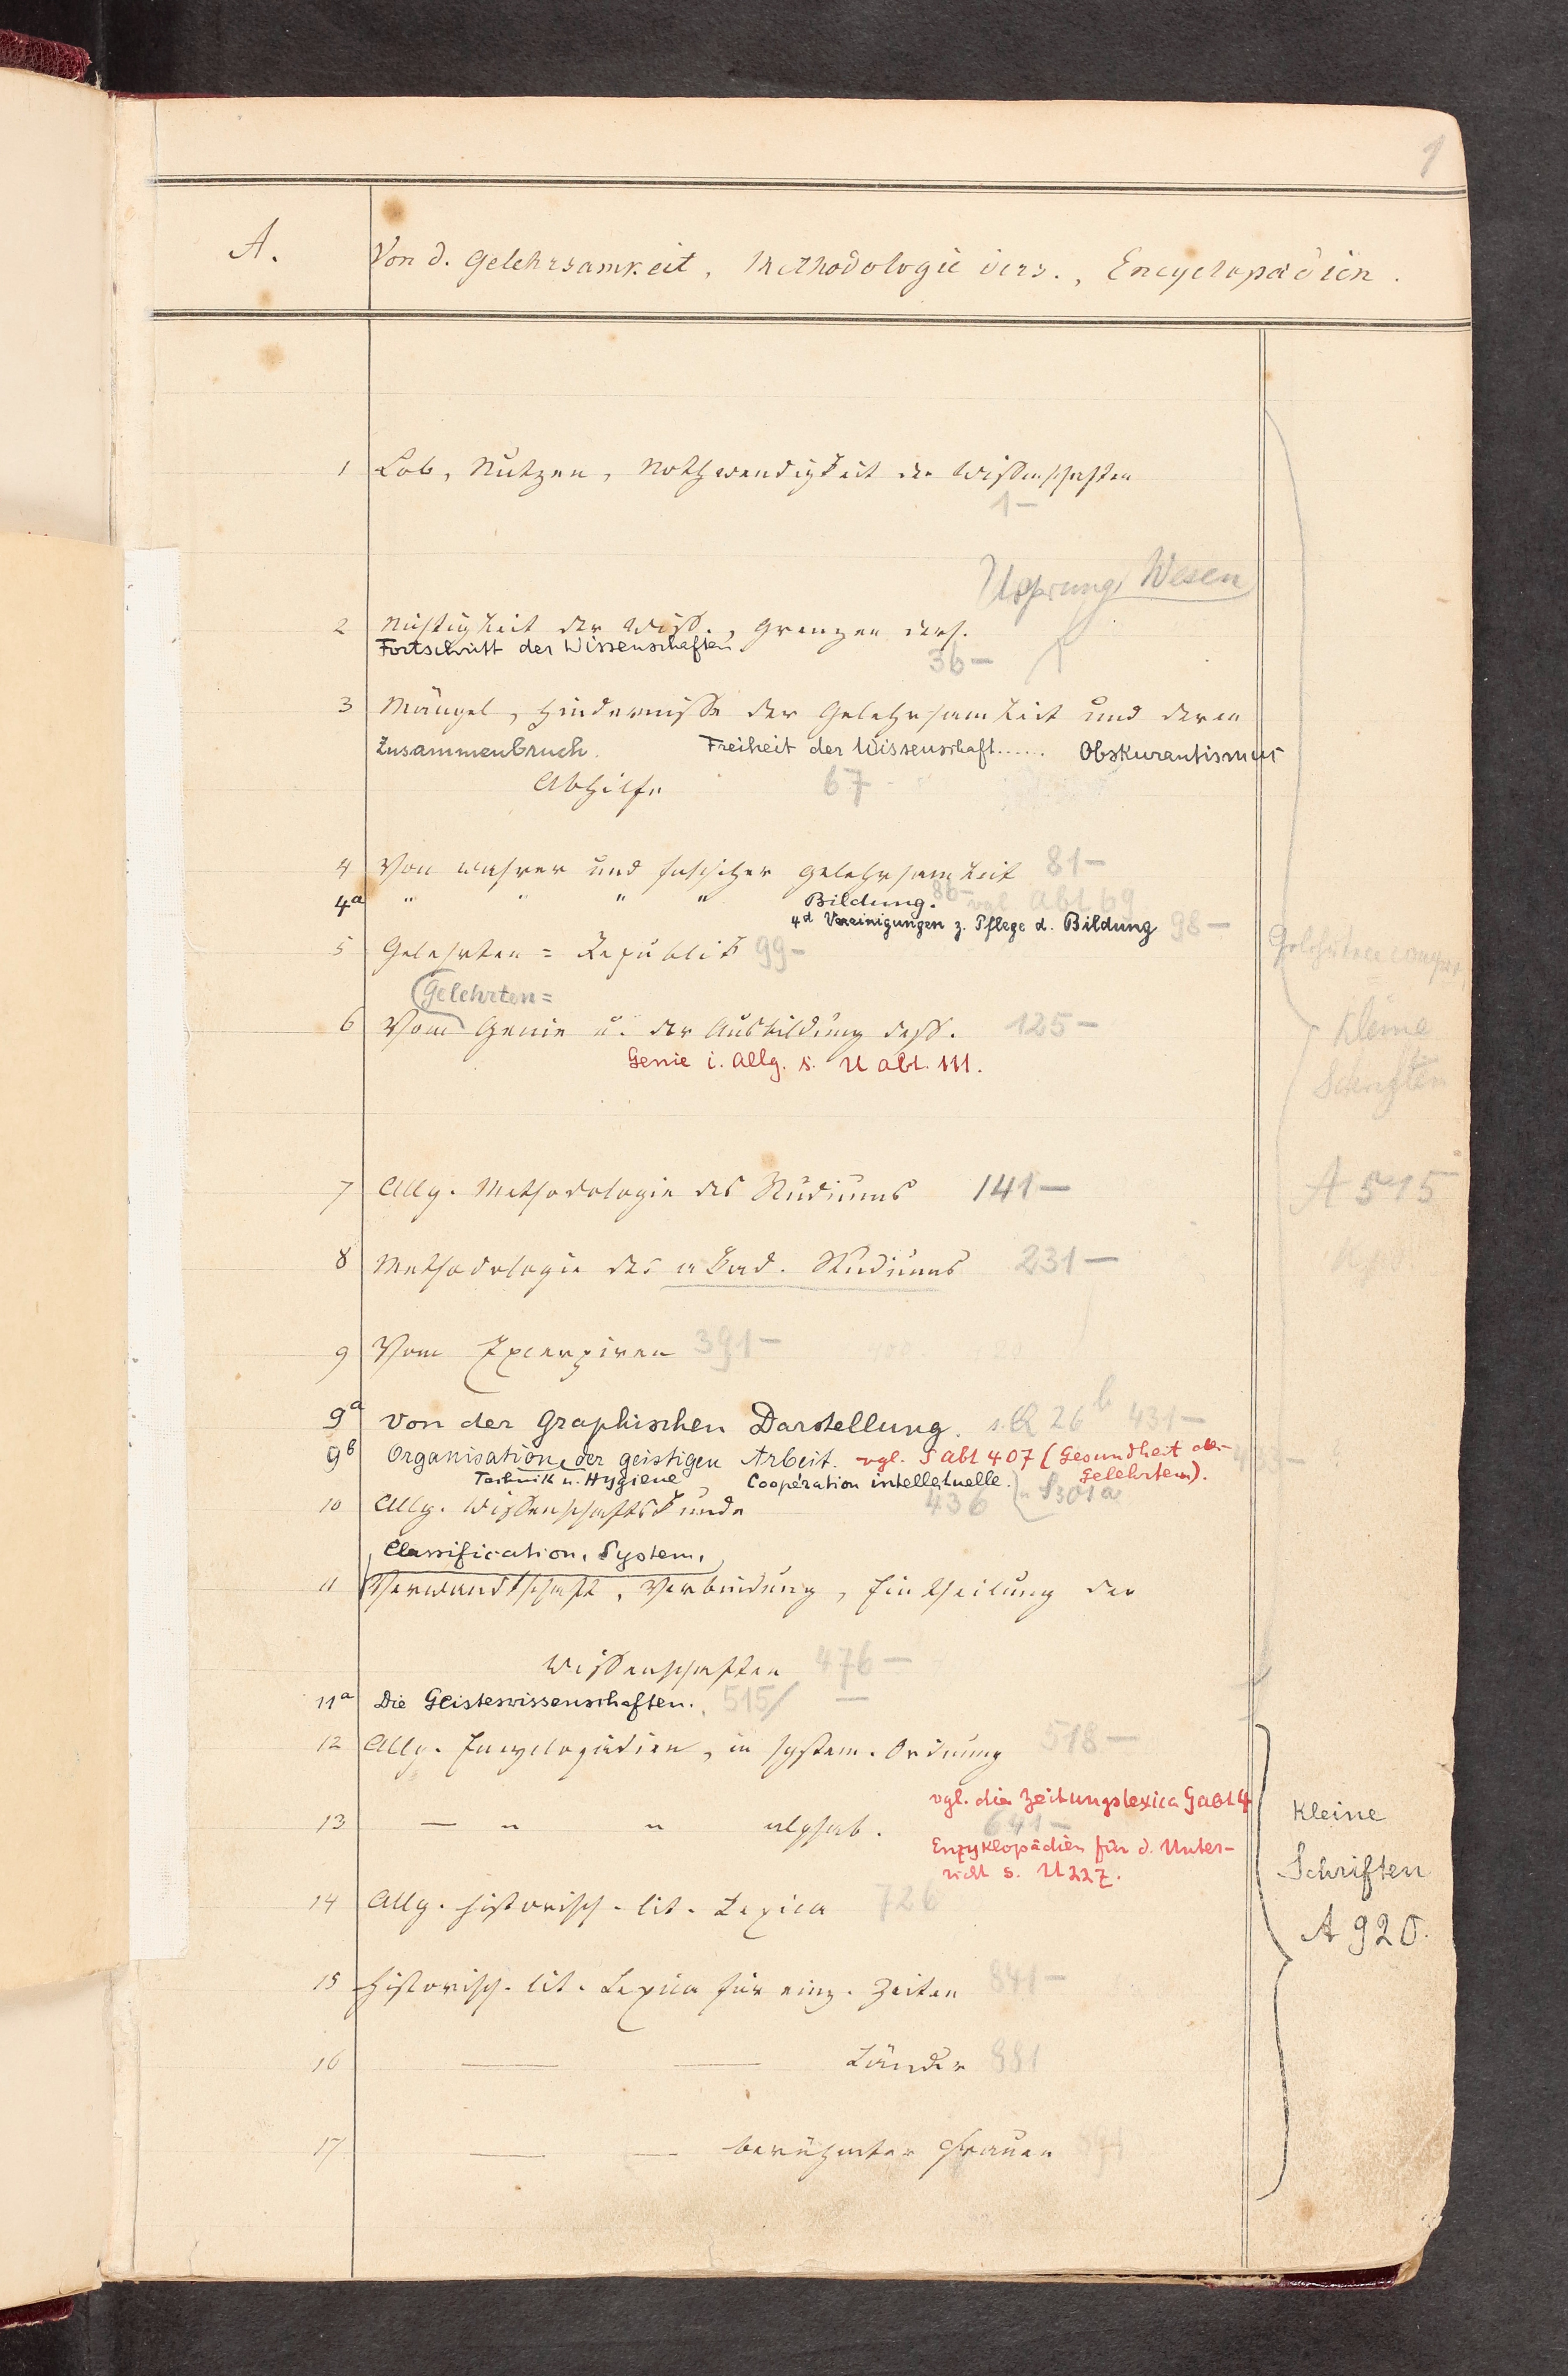 1
A. Von d. Gelehrsamkeit, Methodologie ders., Encyclopædien.
1 Lob, Nutzen, Nothwendigkeit der Wissenschaften
1–
Ursprung, Wesen
2 Nichtigkeit der Wiss., Grenzen ders.
Fortschritt der Wissenschaften
36–
3 Mängel, Hindernisse der Gelehrsamkeit und deren
Zusammenbruch. Freiheit der Wissenschaft...... Obskurantismus
Abhilfe 67
4 Von wahrer und falscher Gelehrsamkeit 81–
4a " " " " Bildung. 86– vgl Abt 69
4d Vereinigungen z. Pflege d. Bildung 98–
5 Gelehrten=Republik 99–
Gelehrten=
6 Vom Genie u. der Ausbildung dess. 125–
Genie i. Allg. s. U Abt. 111.
Kleine
Schriften
7 Allg. Methodologie des Studiums 141–
A 515
8 Methodologie des akad. Studiums 231–
9 Vom Excerpiren 391–
9a Von der Graphischen Darstellung. s. R 26b 431–
9b Organisation der geistigen Arbeit. vgl. S Abt 407 (Gesundheit der
Technik u. Hygiene, Coopération intellectuelle. Gelehrten).
10 Allg. Wissenschaftskunde 436 S301a
Classification, System,
11 Verwandtschaft, Verbindung, Eintheilung der
Wissenschaften 476–
11a Die Geisteswissenschaften. 515/ –
12 Allg. Encyclopädien, in system. Ordnung 518–
vgl. die Zeitungslexica G Abt 4
13 — " " alphab. 641–
Enzyklopädien für d. Unter-
richt s. U 227.
Kleine
Schriften
A 920.
14 Allg. historisch-lit. Lexica 726
15 Historisch-lit. Lexica für einz. Zeiten 841–
16 — — Länder 881
17 — — berühmter Frauen